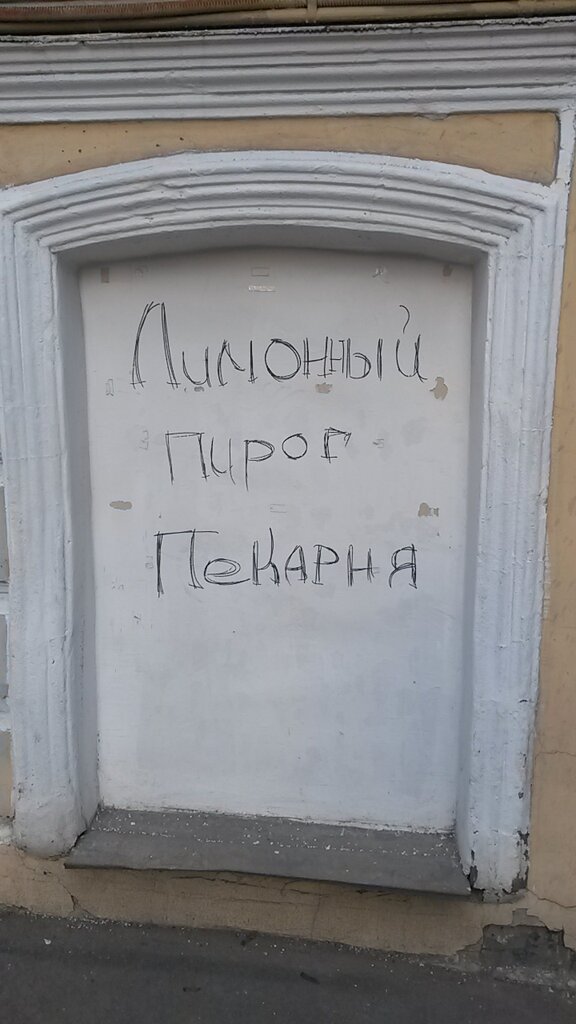 Лимонный
пирог
Пекарня